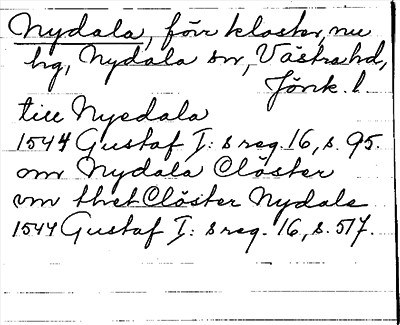 Nydala, förr kloster, nu
hg, Nydala sn, Västra hd,
Jönk. l.
till Nyedala
1544 Gustaf I: s reg. 16, s. 95.
om Nydala Clöster
vm thet Clöster Nydale
1544 Gustaf I: s reg. 16, s. 517.